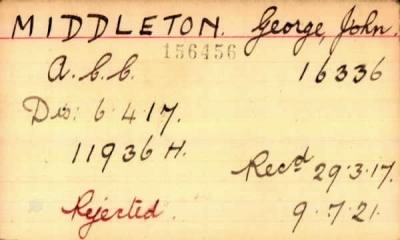 MIDDLETON. George, John.
156456
A.C.C. 16336
Dis: 6.4.17.
11936 H.
Recd 29.3.17.
Rejected. 9.7.21.